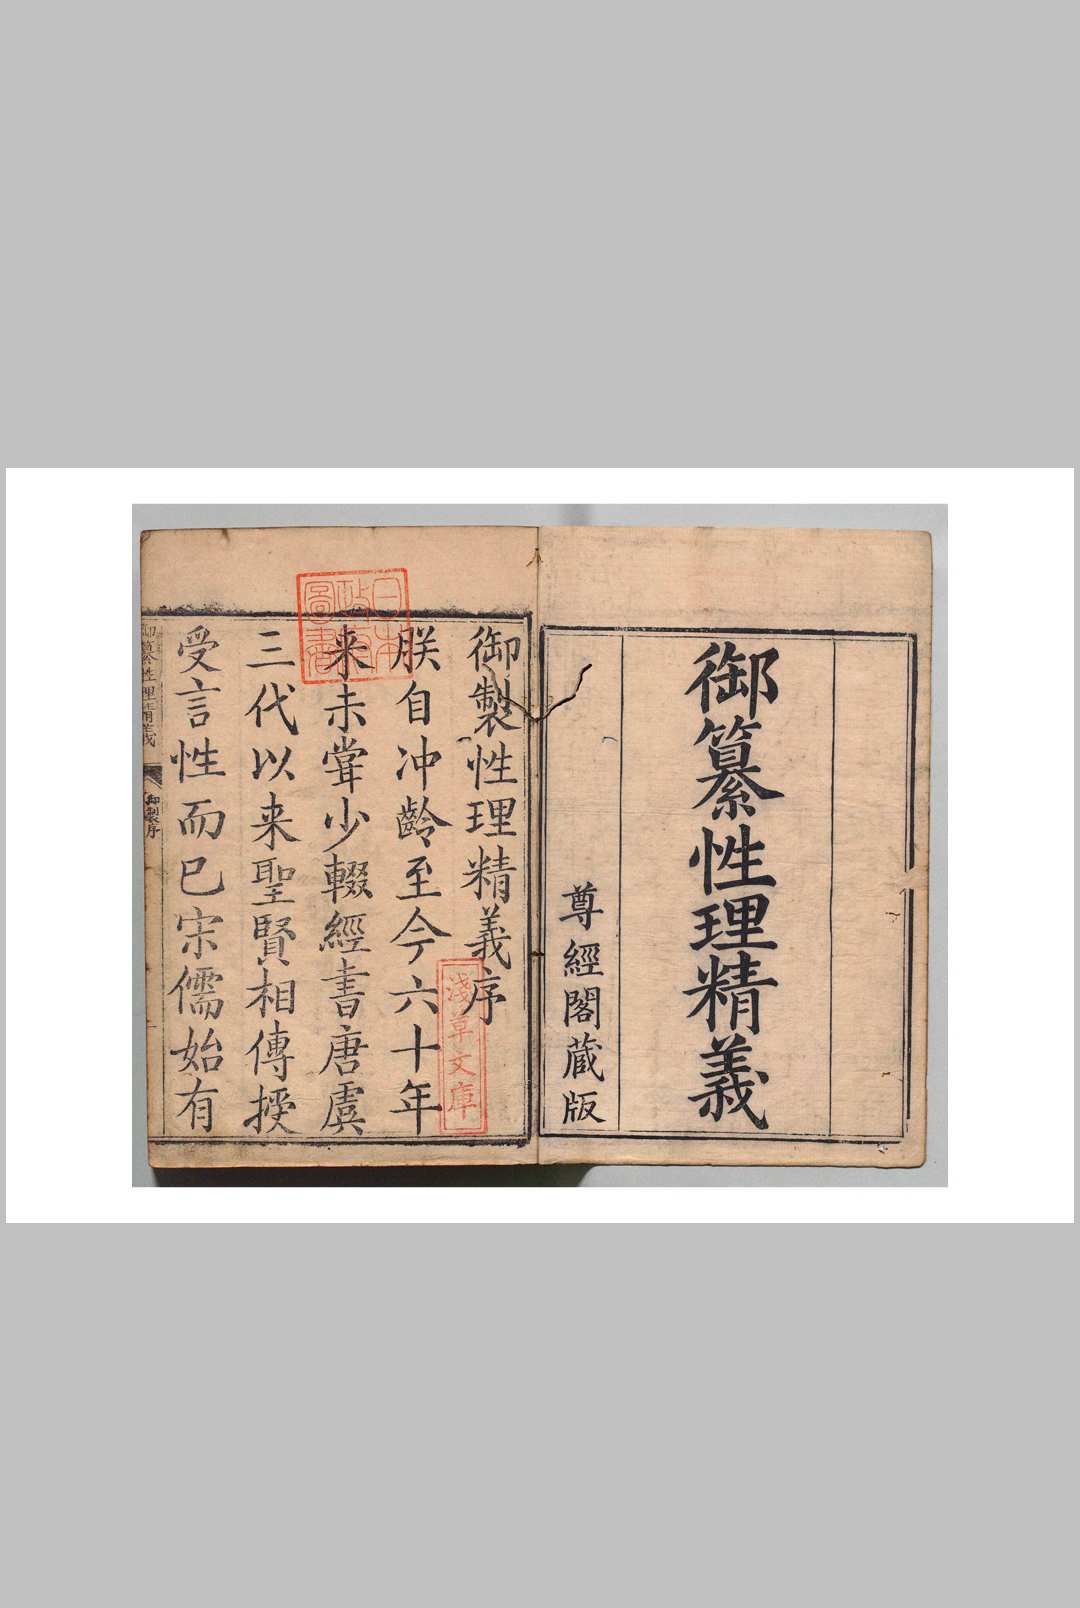 御纂性理精義
尊經閣蔵版
御製性理精義序
朕自沖齡至今六十年
来未甞少輟經書唐虞
三代以来聖賢相傳授
受言性而已宋儒始有
御纂性理精義
御製序
日本
政府
圖書
淺草文庫